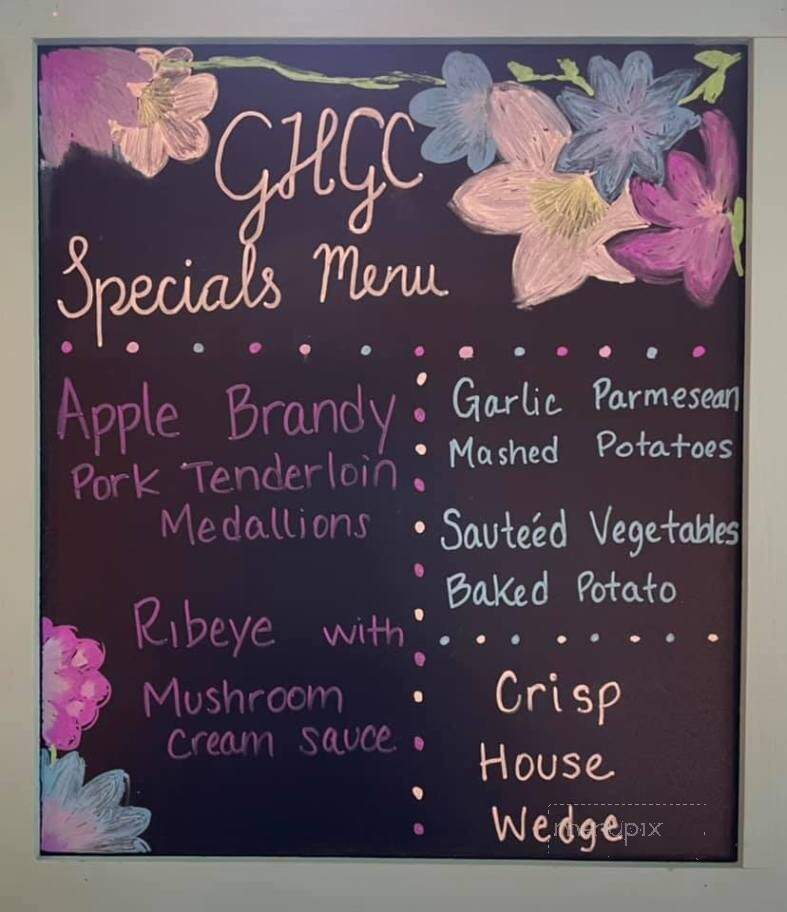 GHGC
Specials Menu
Apple Brandy
Pork Tenderloin
Medallions
Ribeye with
Mushroom
Cream sauce
Garlic Parmesean
Mashed Potatoes
Sauteéd Vegetables
Baked Potato
Crisp
House
Wedge
menupix